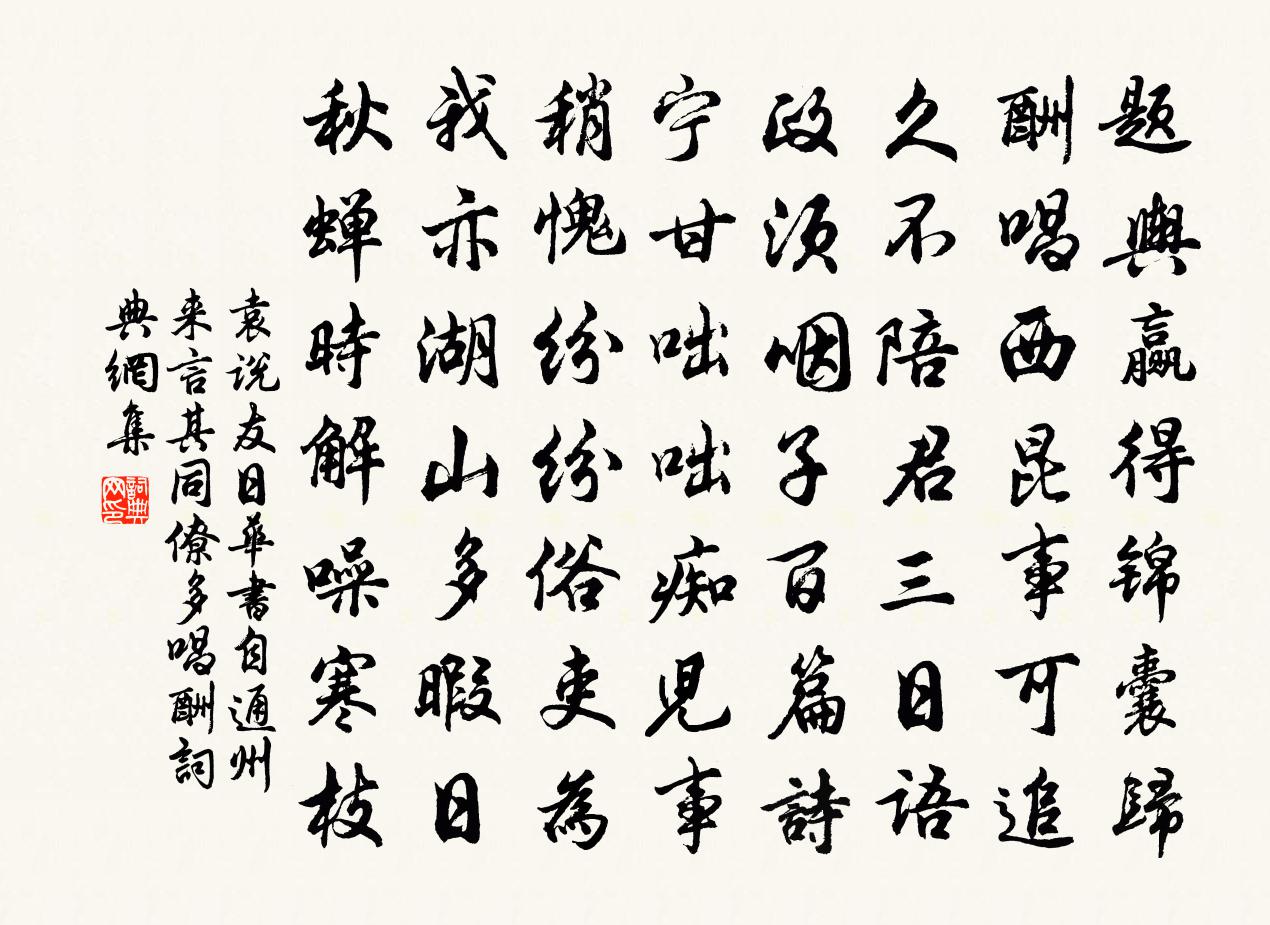 题輿贏得锦囊歸
酬唱西昆事可追
久不陪君三日语
政须咽子百篇詩
宁甘咄咄痴児事
稍愧纷纷俗吏為
我亦湖山多暇日
秋蝉時解噪寒枝
袁说友日華書自通州
来言其同僚多唱酬詞
典網集
詞典网印